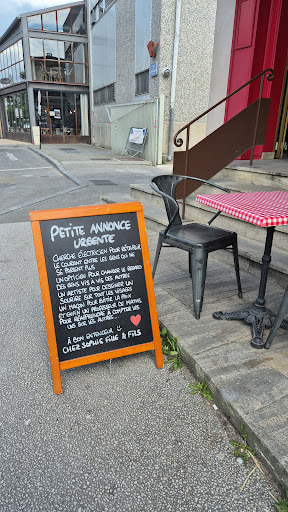 PETITE ANNONCE
URGENTE
CHERCHE ÉLECTRICIEN POUR RÉTABLIR
LE COURANT ENTRE LES GENS QUI NE
SE PARLENT PLUS
UN OPTICIEN POUR CHANGER LE REGARD
DES GENS VIS À VIS DES AUTRES
UN ARTISTE POUR DESSINER UN
SOURIRE SUR TOUS LES VISAGES
UN MAÇON POUR BÂTIR LA PAIX
ET ENFIN UN PROFESSEUR DE MATHS
POUR RÉAPPRENDRE À COMPTER LES
UNS SUR LES AUTRES...
À BON ENTENDEUR
CHEZ SOPHIE FILLE & FILS